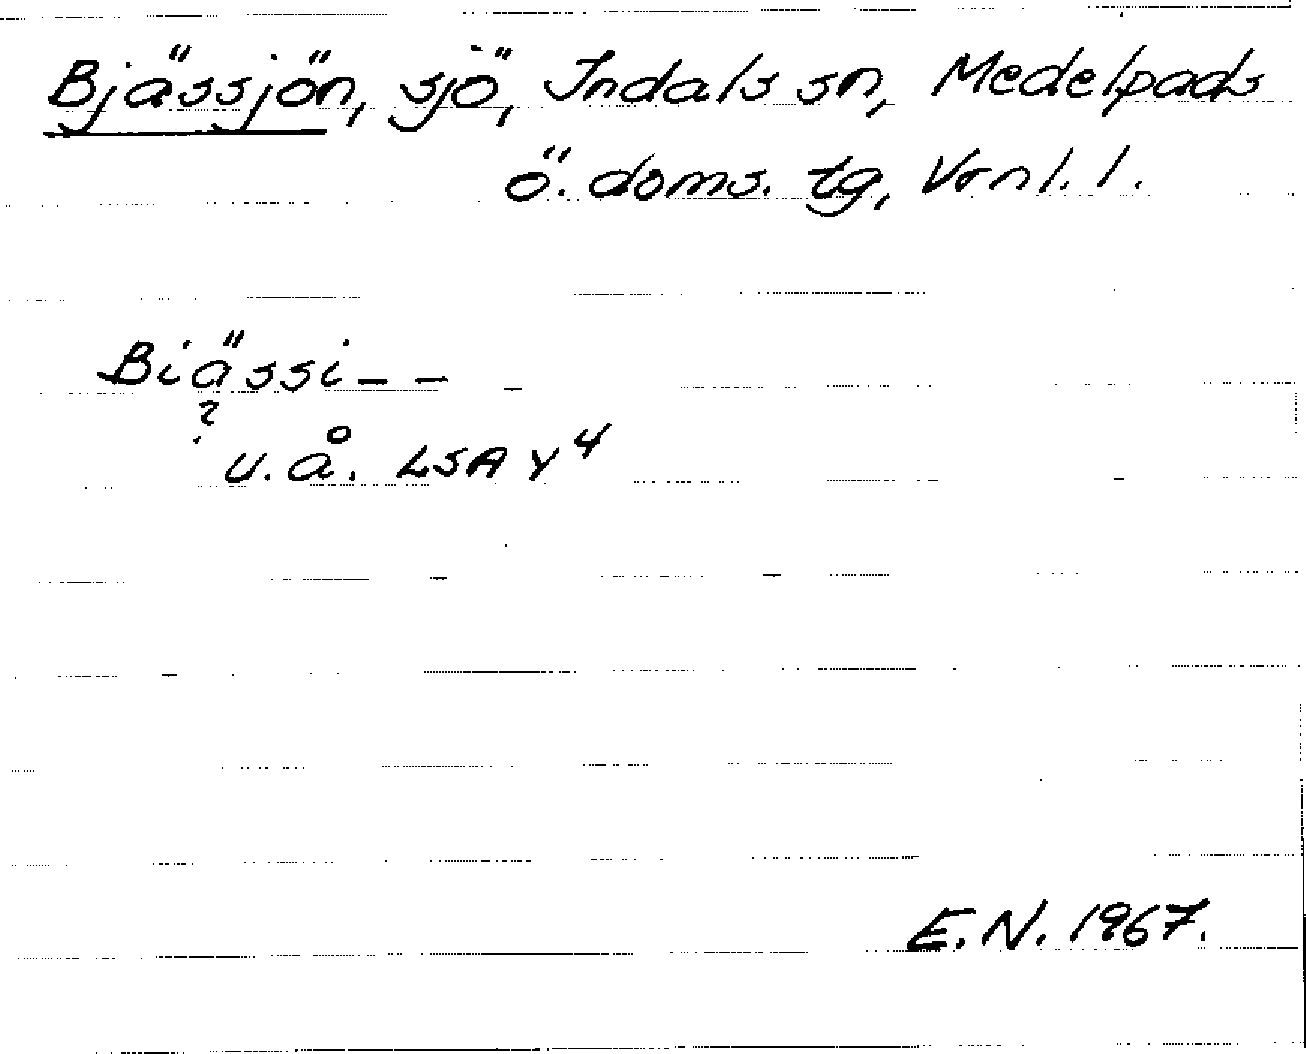 Bjässjön, sjö, Indals sn, Medelpads
ö. doms. tg, Vrnl. l.
Biässi – –
?
u. å. LSA Y 4
E. N. 1967.